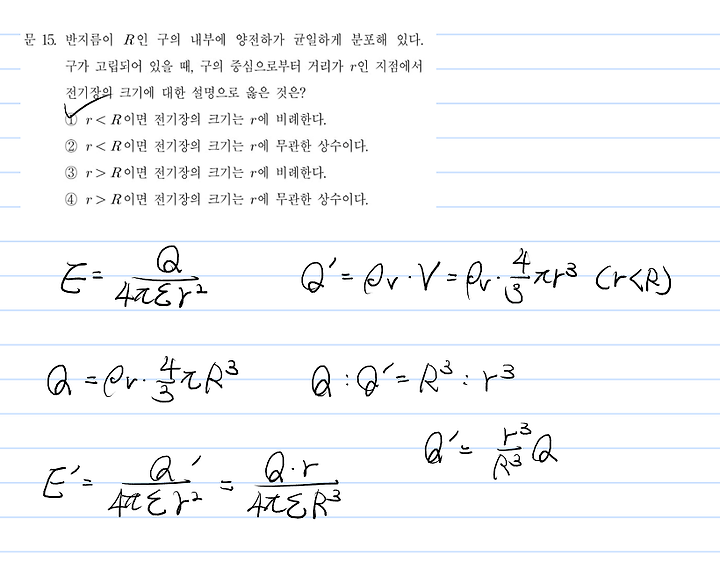 문 15. 반지름이 R인 구의 내부에 양전하가 균일하게 분포해 있다.
구가 고립되어 있을 때, 구의 중심으로부터 거리가 r인 지점에서
전기장의 크기에 대한 설명으로 옳은 것은?
① r < R이면 전기장의 크기는 r에 비례한다.
② r < R이면 전기장의 크기는 r에 무관한 상수이다.
③ r > R이면 전기장의 크기는 r에 비례한다.
④ r > R이면 전기장의 크기는 r에 무관한 상수이다.
E = Q / 4πεr² Q′ = ρv · V = ρv · 4/3 πr³ (r<R)
Q = ρv · 4/3 πR³ Q : Q′ = R³ : r³
Q′ = r³/R³ Q
E′ = Q′ / 4πεr² = Q·r / 4πεR³